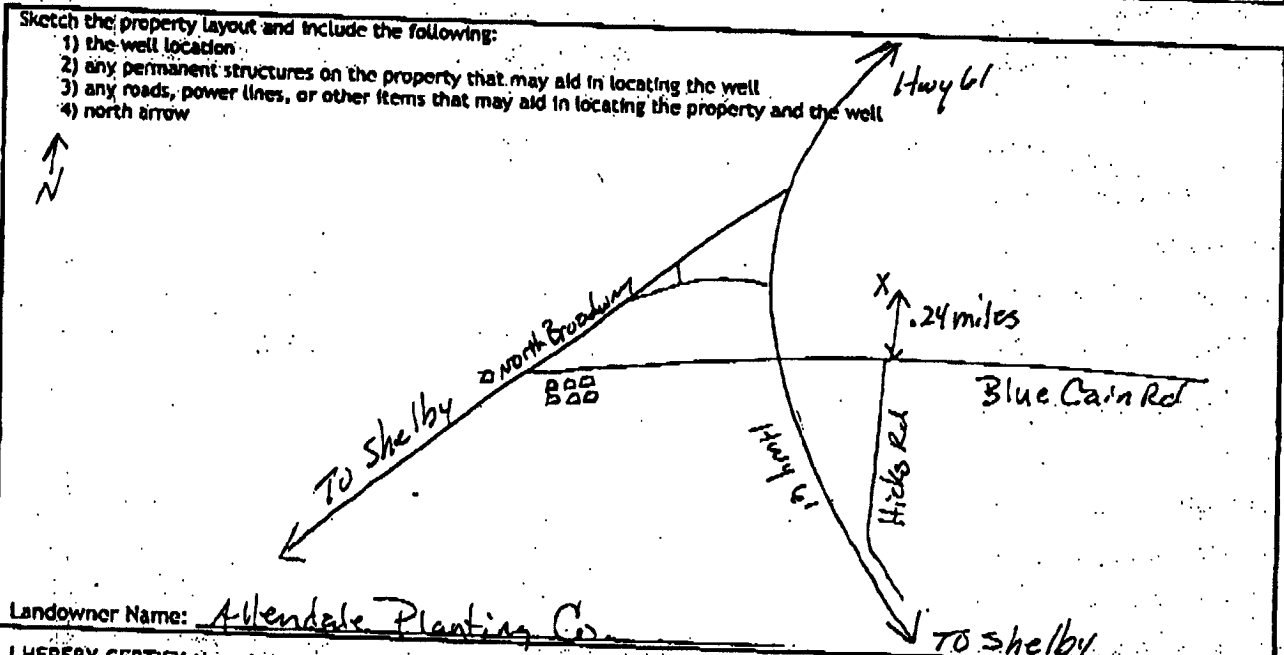 Sketch the property layout and include the following:
1) the well location
2) any permanent structures on the property that may aid in locating the well
3) any roads, power lines, or other items that may aid in locating the property and the well
4) north arrow
N
Hwy 61
X
.24 miles
North Broadway
Blue Cain Rd
To Shelby
Hwy 61
Hicks Rd
Landowner Name: Allendale Planting Co.
To Shelby
I HEREBY CERTIFY